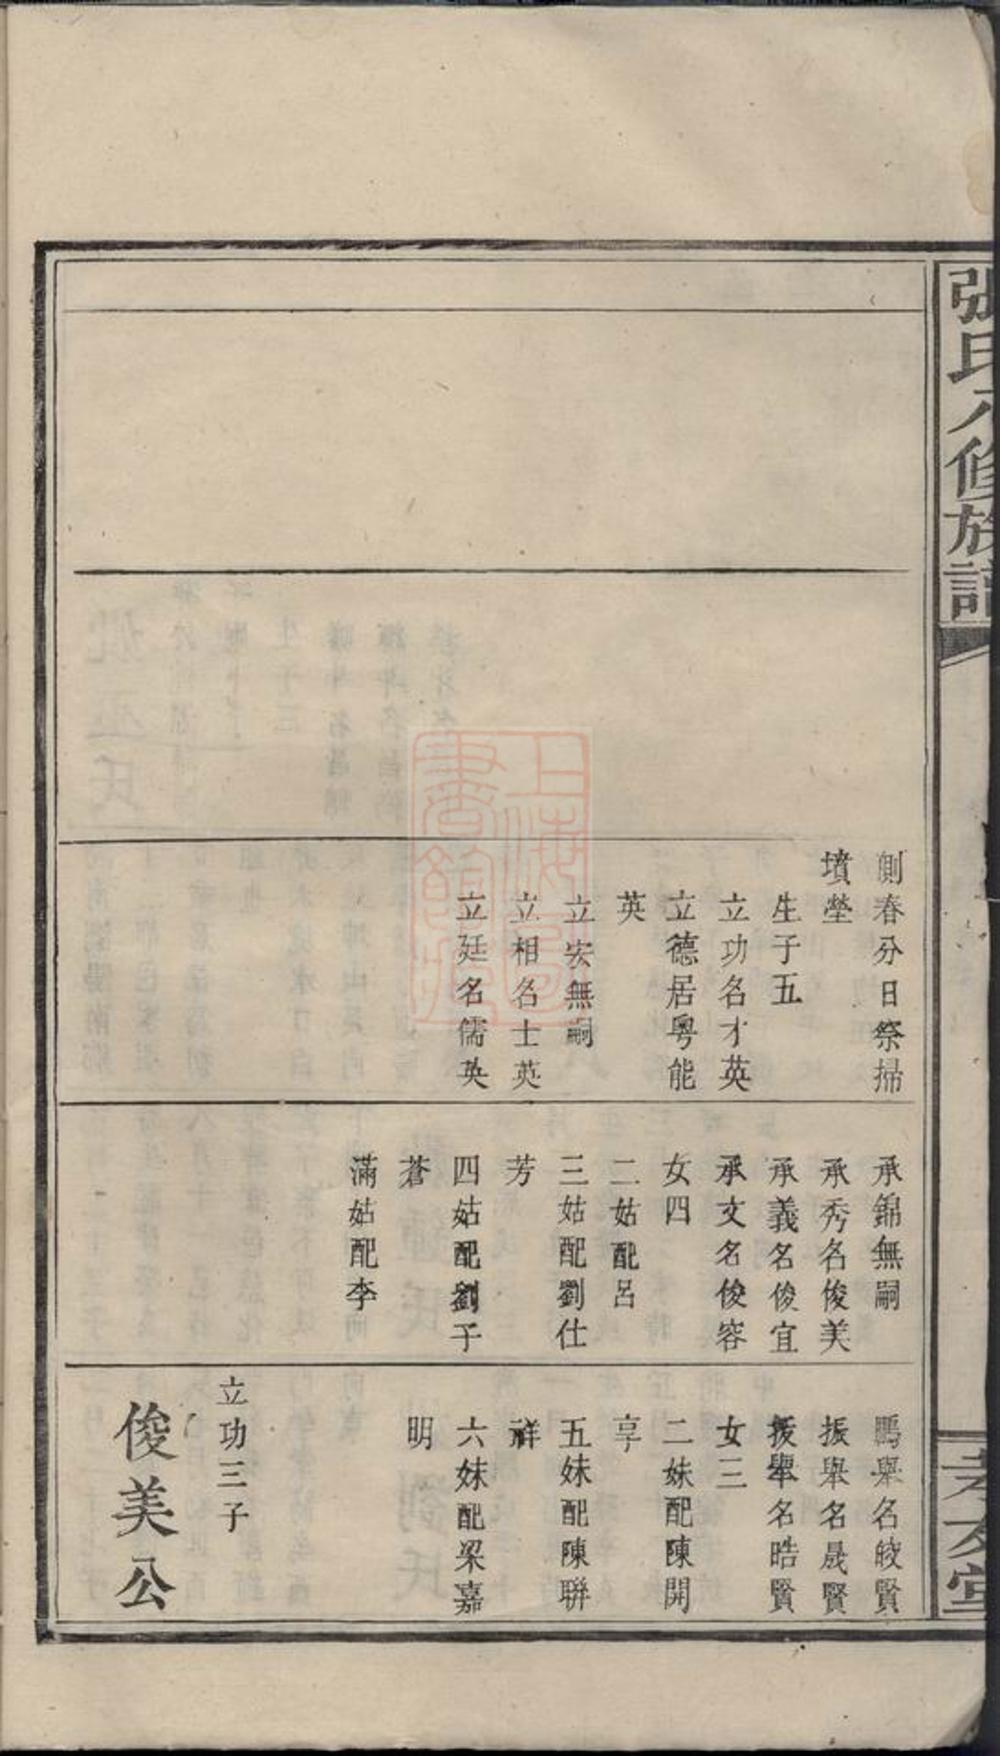 張氏八修族譜
孝友堂
側春分日祭掃
墳塋
生子五
立功名才英
立德居粵能
英
立安無嗣
立相名士英
立廷名儒英
承錦無嗣
承秀名俊美
承義名俊宜
承文名俊容
女四
二姑配呂
三姑配劉仕
芳
四姑配劉子
蒼
滿姑配李
鵬舉名皎賢
振舉名晟賢
拔舉名晧賢
女三
二妹配陳開
享
五妹配陳聯
祥
六妹配梁嘉
明
立功三子
俊美公
上海圖書館藏